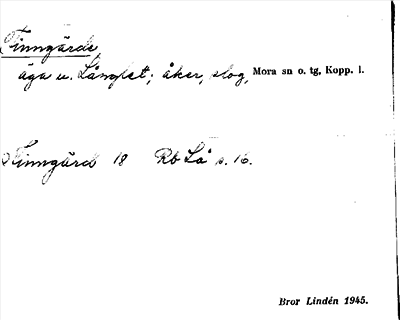 Finngärde,
äga u. Långlet; åker, slog, Mora sn o. tg, Kopp. l.
Finngärd 18 Rb Lå s. 16.
Bror Lindén 1945.